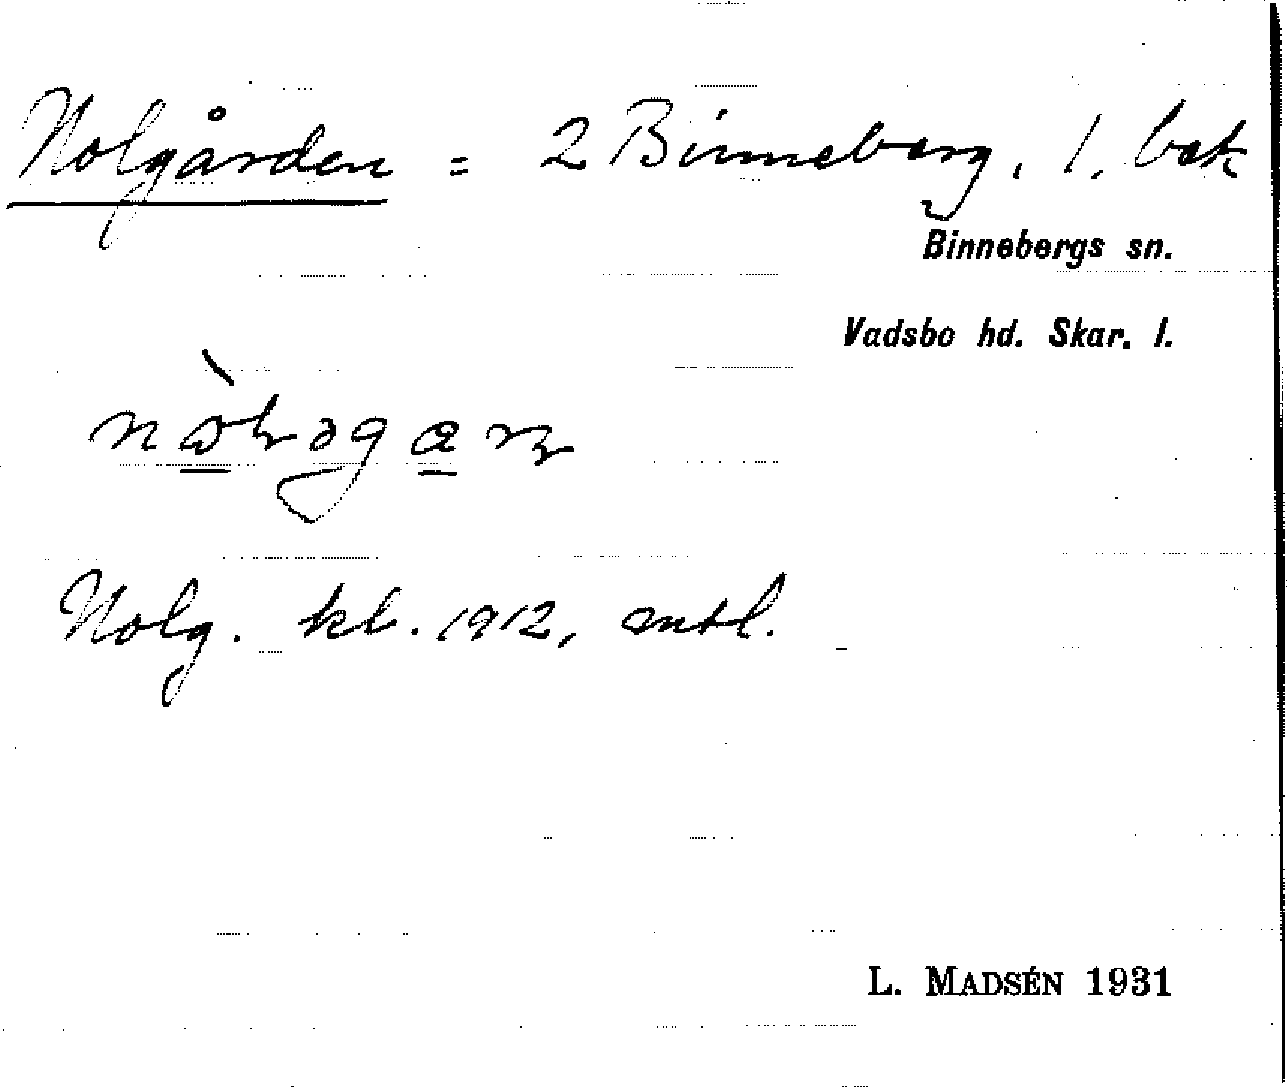 Nolgården = 2 Binneberg, 1. bek
Binnebergs sn.
Vadsbo hd. Skar. l.
Nolg. kb. 1912, mtl.
L. MADSÉN 1931